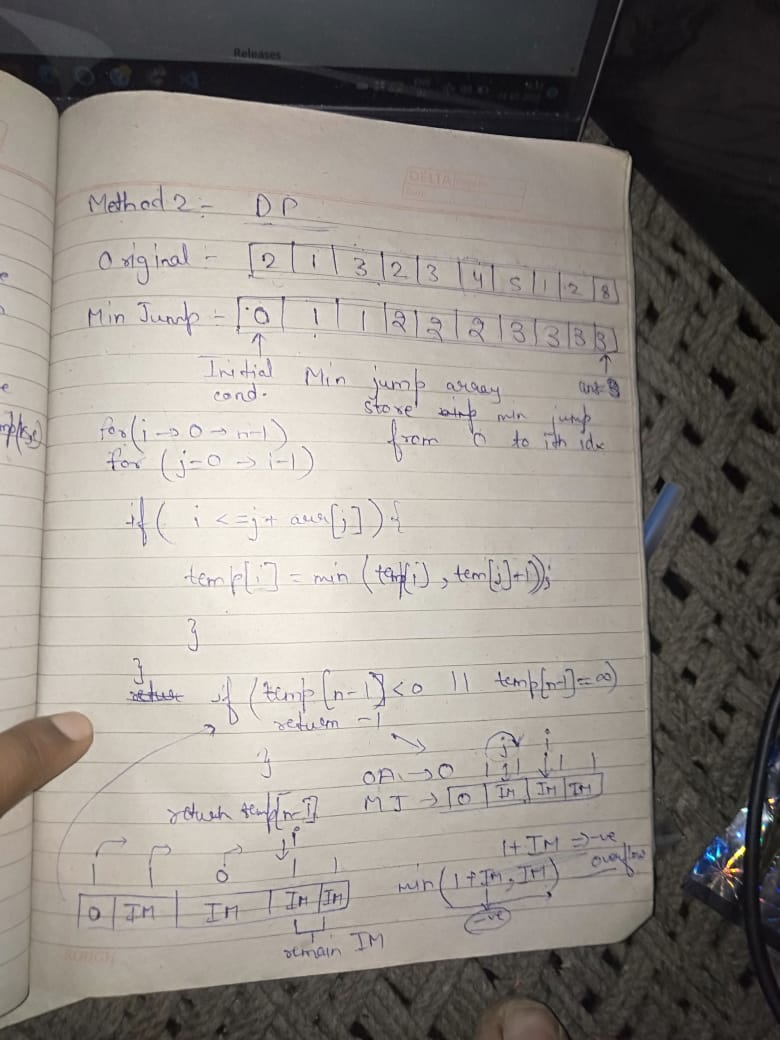 Releases
DELTA
Method 2:- DP
Original - [2|1|3|2|3|4|5|1|2|8]
Min Jump - [0|1|1|2|2|2|3|3|3|3]
Initial cond.
ans
Min jump array
store min jump
from 0 to ith idx
for(i→0→n-1)
for (j=0→i-1)
if( i <=j+ arr[j]){
temp[i] = min (temp[i], tem[j]+1));
}
}
if (temp[n-1]<0 || temp[n-1]=∞)
return -1
}
return temp[n-1]
j i
OA. → 0 1 1 1 1
MJ → [0|IM|IM|IM]
i
1 1 0 1 1
[0|IM|IM|IM|IM]
remain IM
1+IM ⇒ -ve
overflow
min(1+IM, IM)
-ve
ROUGH